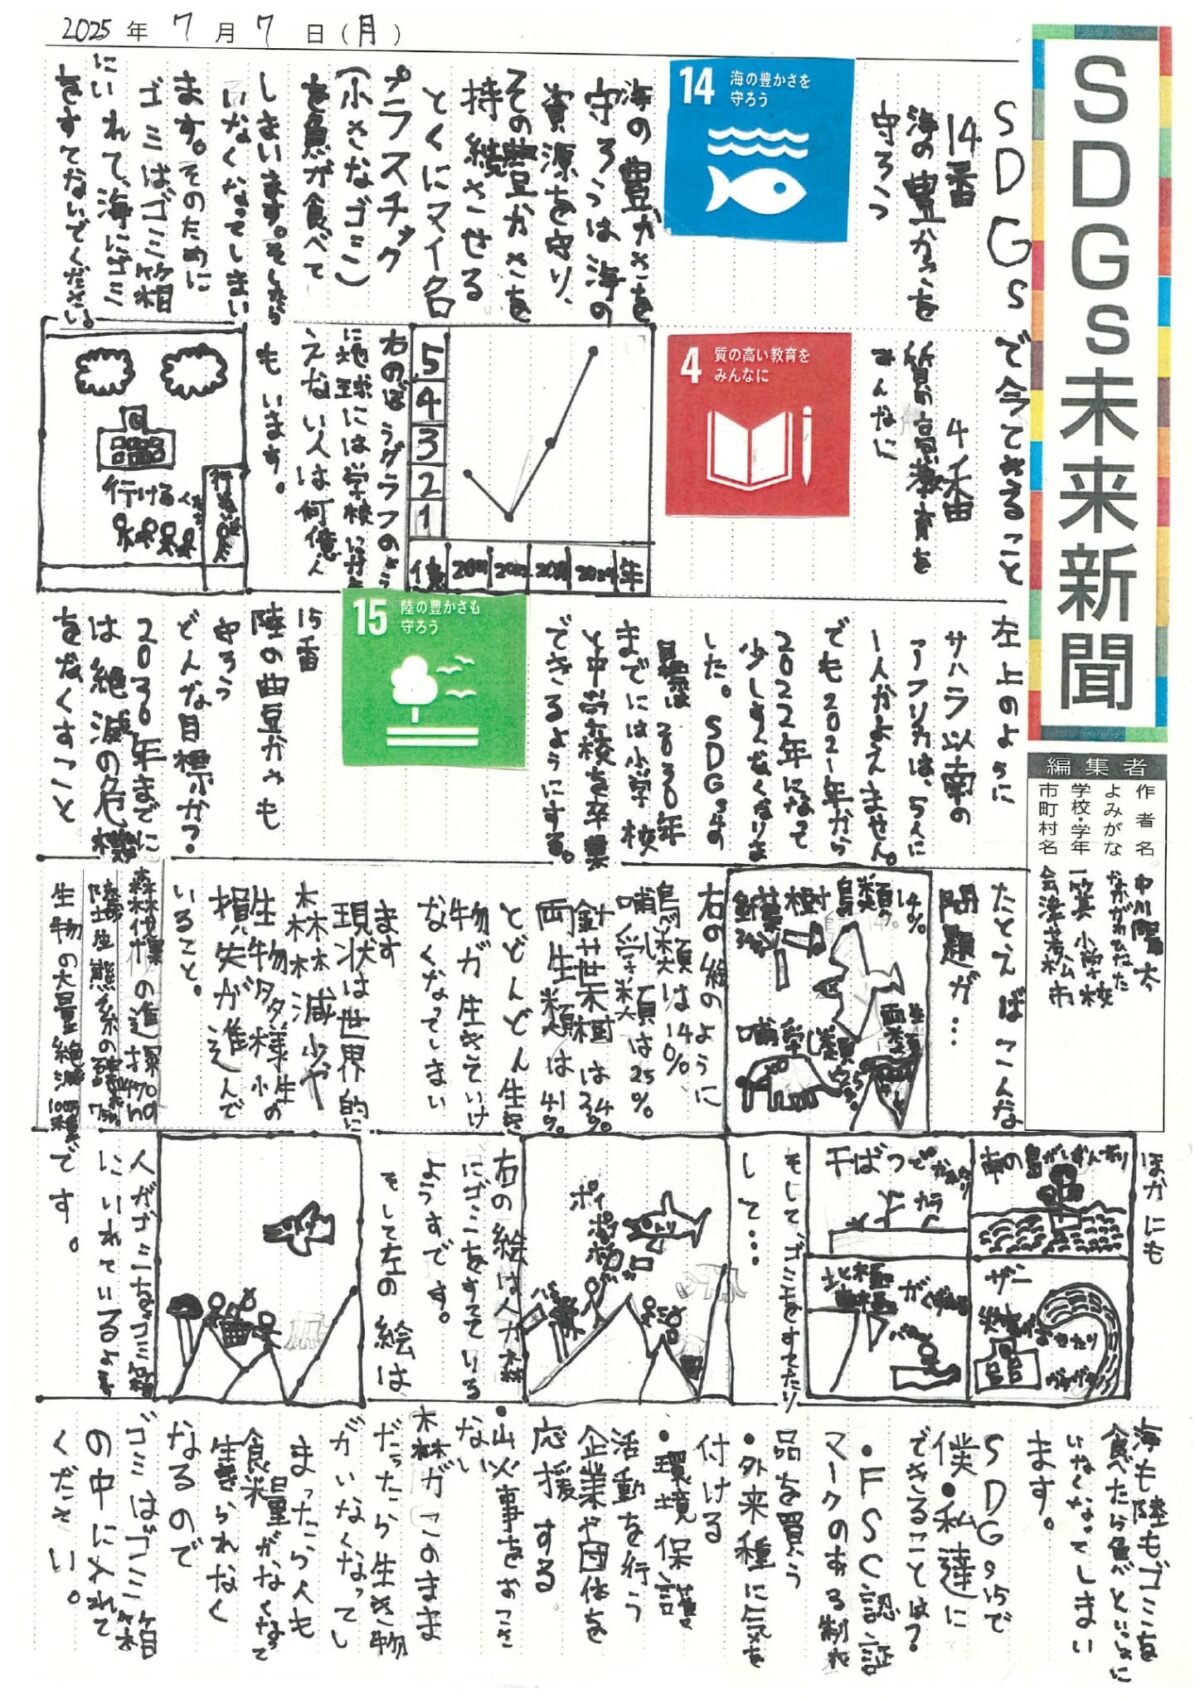 2025年7月7日(月)
SDGs未来新聞
編集者
作者名
よみがな
学校・学年 一箕小学校
市町村名 会津若松市
SDGsで今できること
14番
海の豊かさを
守ろう
14 海の豊かさを
守ろう
海の豊かさを
守ろうは海の
資源を守り、
その豊かさを
持続させる
とくにマイクロ
プラスチック
(小さなゴミ)
を魚が食べて
しまいます。そしたら
いなくなってしまい
ます。そのために
ゴミはゴミ箱
にいれて、海にゴミ
をすてないでください。
4番
質の高い教育を
みんなに
4 質の高い教育を
みんなに
5
4
3
2
1
億
2021
2022
2023
2024
年
右のぼうグラフのよう
に地球には学校に行
えない人は何億人
もいます。
行ける
左上のように
サハラ以南の
アフリカは、5人に
一人かよえません。
でも2021年から
2022年になって
少しすくなくなりま
した。SDGs4の
目標は2030年
までには小学校
と中学校を卒業
できるようにする。
15 陸の豊かさも
守ろう
15番
陸の豊かさも
守ろう
どんな目標か?
2030年までに
は絶滅の危機
をなくすこと
たとえばこんな
問題が…
鳥類
14%
針葉樹
34%
哺乳類
両生類
右の絵のように
鳥類は14%
哺乳類は25%
針葉樹は34%
両生類は41%
とどんどん生き
物が生きていけ
なくなってしまい
ます
現状は世界的に
森林減少や
生物多様性の
損失が進んで
いること。
森林伐採の進
陸域生態系の
生物の大量絶滅
です。
ほかにも
南の島がしずんだり
干ばつで
カラ
北極
ザー
そして、ゴミをすてたり
して…
ポイ
右の絵は人が森
にゴミをすてている
ようすです。
そして左の絵は
人がゴミをゴミ箱
にいれているよ
海も陸もゴミを
食べたら魚がといっしょに
いなくなってしまい
ます。
SDGs15で
僕・私達に
できることは?
・FSC認証
マークのある製
品を買う
・外来種に気を
付ける
・環境保護
活動を行う
企業や団体を
応援する
・山火事をおこさ
ない
森がこのまま
だったら生き物
がいなくなってし
まったら人も
食糧がなくなって
生きられなく
なるので
ゴミはゴミ箱
の中に入れて
ください。